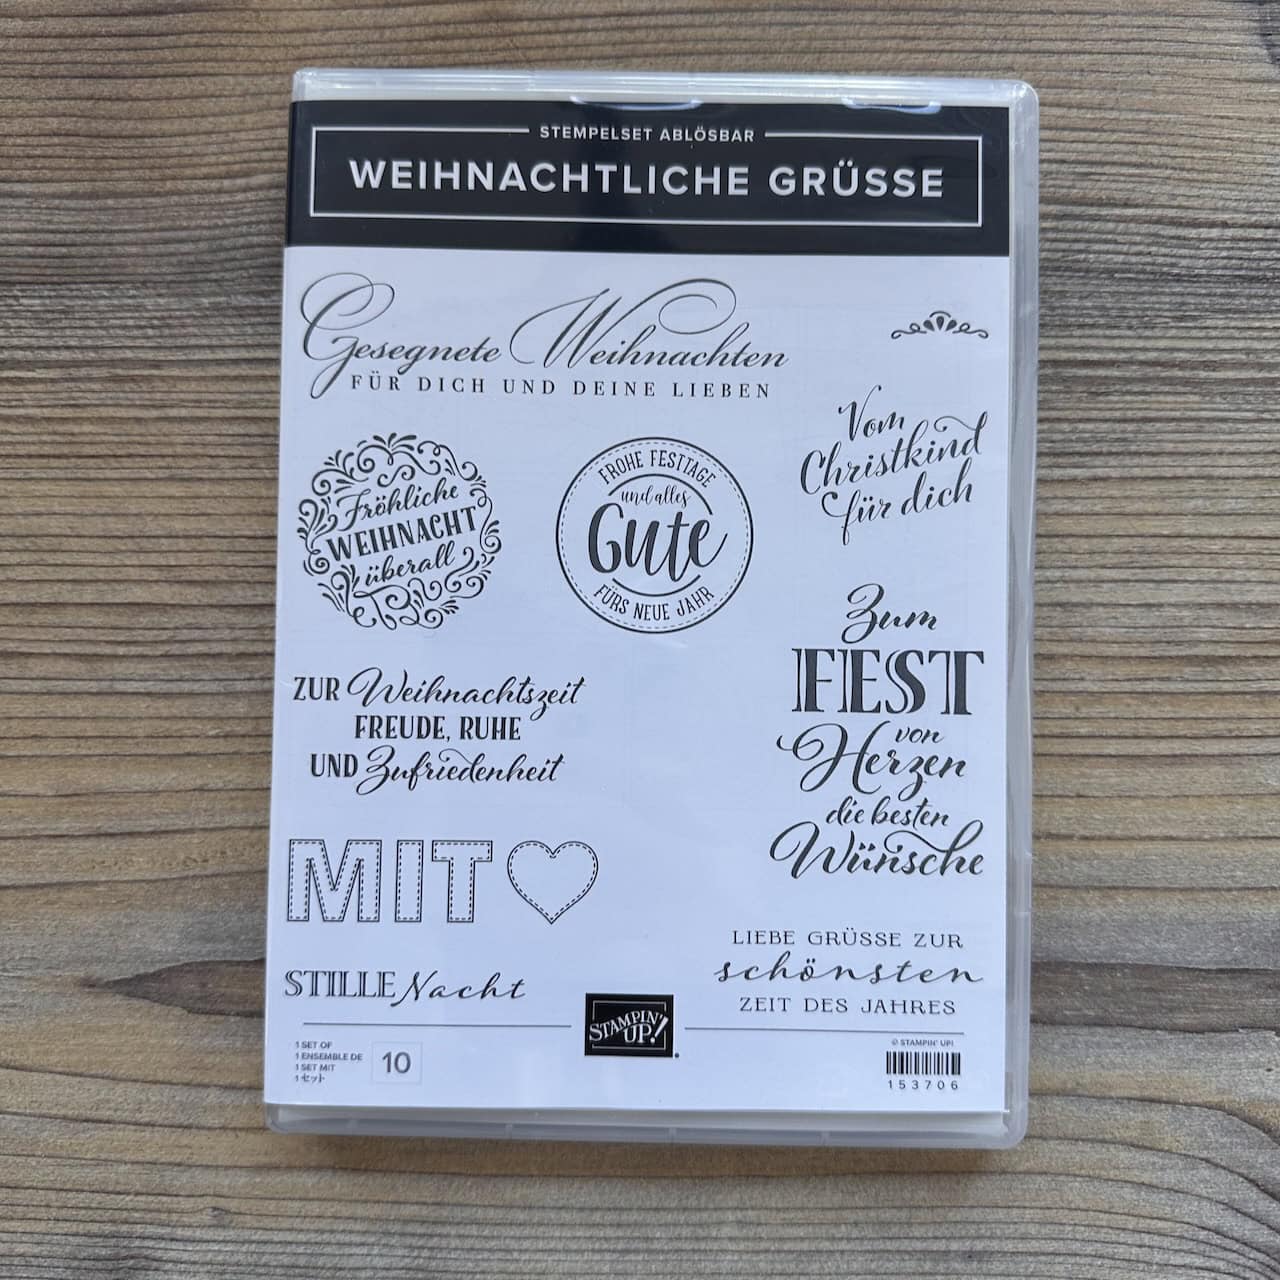 STEMPELSET ABLÖSBAR
WEIHNACHTLICHE GRÜSSE
Gesegnete Weihnachten
FÜR DICH UND DEINE LIEBEN
Vom
Christkind
für dich
Fröhliche
WEIHNACHT
überall
FROHE FESTTAGE
und alles
Gute
FÜRS NEUE JAHR
Zum
FEST
von
Herzen
die besten
Wünsche
ZUR Weihnachtszeit
FREUDE, RUHE
UND Zufriedenheit
MIT
STILLE Nacht
LIEBE GRÜSSE ZUR
schönsten
ZEIT DES JAHRES
STAMPIN'
UP!
1 SET OF
1 ENSEMBLE DE
1 SET MIT
1 セット
10
© STAMPIN' UP!
153706